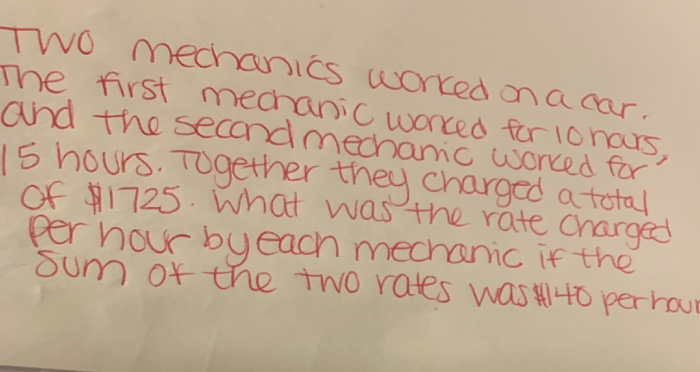 Two mechanics worked on a car.
The first mechanic worked for 10 hours,
and the second mechanic worked for
15 hours. Together they charged a total
of $1725. What was the rate charged
per hour by each mechanic if the
sum of the two rates was $140 per hour